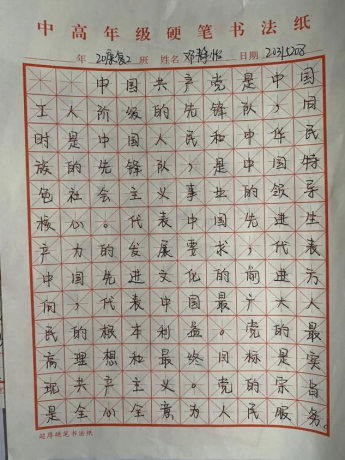 中高年级硬笔书法纸
年 20康复2 班 姓名 邓静怡 日期 2031208
中国共产党是中国
工人阶级的先锋队，同
时是中国人民和中华民
族的先锋队，是中国特
色社会主义事业的领导
核心。代表中国先进生
产力的发展要求，代表
中国先进文化的前进方
向，代表中国最广大人
民的根本利益。党的最
高理想和最终目标是实
现共产主义。党的宗旨
是全心全意为人民服务。
超库硬笔书法纸